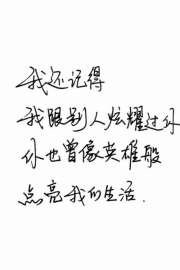 我还记得
我跟别人炫耀过你
你也曾像英雄般
点亮我的生活.